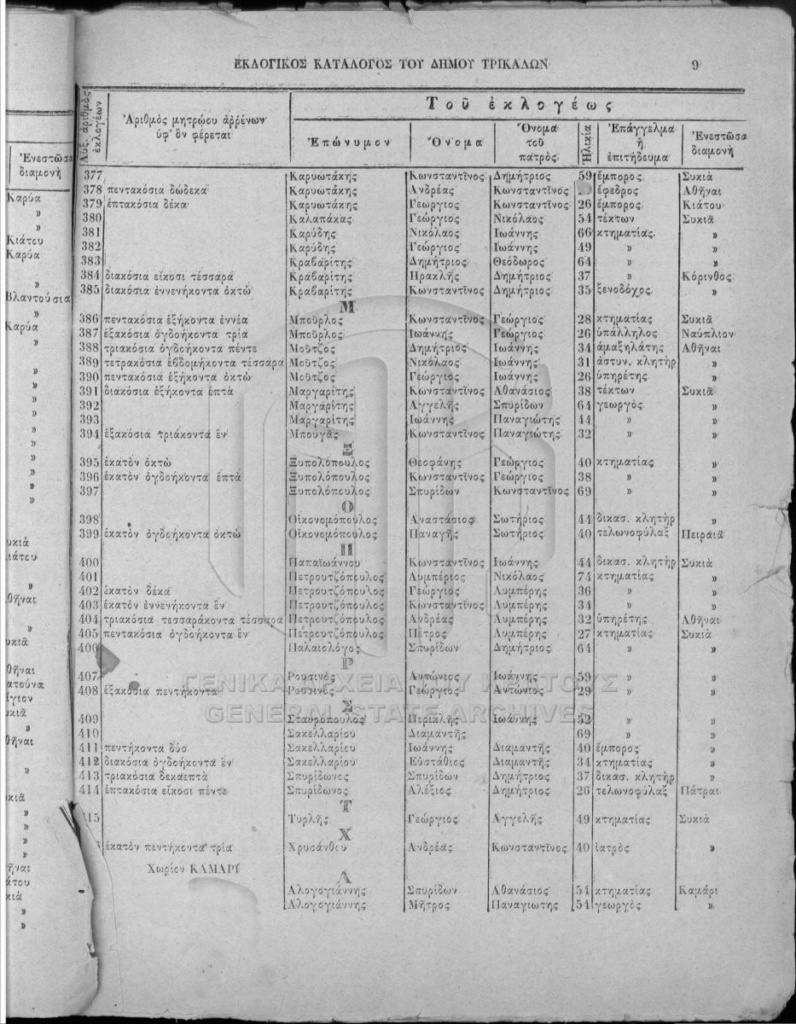 ΕΚΛΟΓΙΚΟΣ ΚΑΤΑΛΟΓΟΣ ΤΟΥ ΔΗΜΟΥ ΤΡΙΚΑΛΩΝ 9
Αὔξ. ἀριθμὸς ἐκλογέων
Ἀριθμὸς μητρῴου ἀρρένων ὑφ' ὃν φέρεται
Τοῦ ἐκλογέως
Ἐπώνυμον Ὄνομα Ὄνομα τοῦ πατρός. Ἡλικία Ἐπάγγελμα ἢ ἐπιτήδευμα Ἐνεστῶσα διαμονὴ
377 Καρυωτάκης Κωνσταντῖνος Δημήτριος 59 ἔμπορος Συκιὰ
378 πεντακόσια δώδεκα Καρυωτάκης Ἀνδρέας Κωνσταντῖνος ἔφεδρος Ἀθῆναι
379 ἑπτακόσια δέκα Καρυωτάκης Γεώργιος Κωνσταντῖνος 26 ἔμπορος Κιάτου
380 Καλαπάκας Γεώργιος Νικόλαος 54 τέκτων Συκιὰ
381 Καρύδης Νικόλαος Ἰωάννης 66 κτηματίας »
382 Καρύδης Γεώργιος Ἰωάννης 49 » »
383 Κραβαρίτης Δημήτριος Θεόδωρος 64 » »
384 διακόσια εἴκοσι τέσσαρα Κραβαρίτης Ἡρακλῆς Δημήτριος 37 » Κόρινθος
385 διακόσια ἐννενήκοντα ὀκτὼ Κραβαρίτης Κωνσταντῖνος Δημήτριος 35 ξενοδόχος »
Μ
386 πεντακόσια ἑξήκοντα ἐννέα Μποῦρλος Κωνσταντῖνος Γεώργιος 28 κτηματίας Συκιὰ
387 ἑξακόσια ὀγδοήκοντα τρία Μποῦρλος Ἰωάννης Γεώργιος 26 ὑπάλληλος Ναύπλιον
388 τριακόσια ὀγδοήκοντα πέντε Μοῦτζος Δημήτριος Ἰωάννης 34 ἁμαξηλάτης Ἀθῆναι
389 τετρακόσια ἑβδομήκοντα τέσσαρα Μοῦτζος Νικόλαος Ἰωάννης 31 ἀστυν. κλητὴρ »
390 πεντακόσια ἑξήκοντα ὀκτὼ Μοῦτζος Γεώργιος Ἰωάννης 26 ὑπηρέτης »
391 διακόσια ἑξήκοντα ἑπτὰ Μαργαρίτης Κωνσταντῖνος Ἀθανάσιος 38 τέκτων Συκιὰ
392 Μαργαρίτης Ἀγγελῆς Σπυρίδων 64 γεωργὸς »
393 Μαργαρίτης Ἰωάννης Παναγιώτης 44 » »
394 ἑξακόσια τριάκοντα ἓν Μπουγᾶς Κωνσταντῖνος Παναγιώτης 32 » »
Ξ
395 ἑκατὸν ὀκτὼ Ξυπολόπουλος Θεοφάνης Γεώργιος 40 κτηματίας »
396 ἑκατὸν ὀγδοήκοντα ἑπτὰ Ξυπολόπουλος Κωνσταντῖνος Γεώργιος 38 » »
397 Ξυπολόπουλος Σπυρίδων Κωνσταντῖνος 69 » »
Ο
398 Οἰκονομόπουλος Ἀναστάσιος Σωτήριος 44 δικασ. κλητὴρ »
399 ἑκατὸν ὀγδοήκοντα ὀκτὼ Οἰκονομόπουλος Παναγῆς Σωτήριος 40 τελωνοφύλαξ Πειραιᾶ
Π
400 Παπαϊωάννου Κωνσταντῖνος Ἰωάννης 44 δικασ. κλητὴρ Συκιὰ
401 Πετρουτζόπουλος Λυμπέριος Νικόλαος 74 κτηματίας »
402 ἑκατὸν δέκα Πετρουτζόπουλος Γεώργιος Λυμπέρης 36 » »
403 ἑκατὸν ἐννενήκοντα ἓν Πετρουτζόπουλος Κωνσταντῖνος Λυμπέρης 34 » »
404 τριακόσια τεσσαράκοντα τέσσαρα Πετρουτζόπουλος Ἀνδρέας Λυμπέρης 32 ὑπηρέτης Ἀθῆναι
405 πεντακόσια ὀγδοήκοντα ἓν Πετρουτζόπουλος Πέτρος Λυμπέρης 27 κτηματίας Συκιὰ
406 Παλαιολόγος Σπυρίδων Δημήτριος 64 » »
Ρ
407 Ρουσινὸς Ἀντώνιος Ἰωάννης 59 » »
408 ἑξακόσια πεντήκοντα Ρουσινὸς Γεώργιος Ἀντώνιος 29 » »
ΓΕΝΙΚΑ ΑΡΧΕΙΑ ΤΟΥ ΚΡΑΤΟΥΣ
GENERAL STATE ARCHIVES
Σ
409 Σταυρόπουλος Περικλῆς Ἰωάννης 52 » »
410 Σακελλαρίου Διαμαντῆς 69 » »
411 πεντήκοντα δύο Σακελλαρίου Ἰωάννης Διαμαντῆς 40 ἔμπορος »
412 διακόσια ὀγδοήκοντα ἓν Σακελλαρίου Εὐστάθιος Διαμαντῆς 34 κτηματίας »
413 τριακόσια δεκαεπτὰ Σπυρίδωνος Σπυρίδων Δημήτριος 37 δικασ. κλητὴρ »
414 ἑπτακόσια εἴκοσι πέντε Σπυρίδωνος Ἀλέξιος Δημήτριος 26 τελωνοφύλαξ Πάτραι
Τ
415 Τυρλῆς Γεώργιος Ἀγγελῆς 49 κτηματίας Συκιὰ
Χ
ἑκατὸν πεντήκοντα τρία Χρυσάνθου Ἀνδρέας Κωνσταντῖνος 40 ἰατρὸς »
Χωρίον ΚΑΜΑΡΙ
Α
Ἀλογογιάννης Σπυρίδων Ἀθανάσιος 54 κτηματίας Καμάρι
Ἀλογογιάννης Μῆτρος Παναγιώτης 54 γεωργὸς »